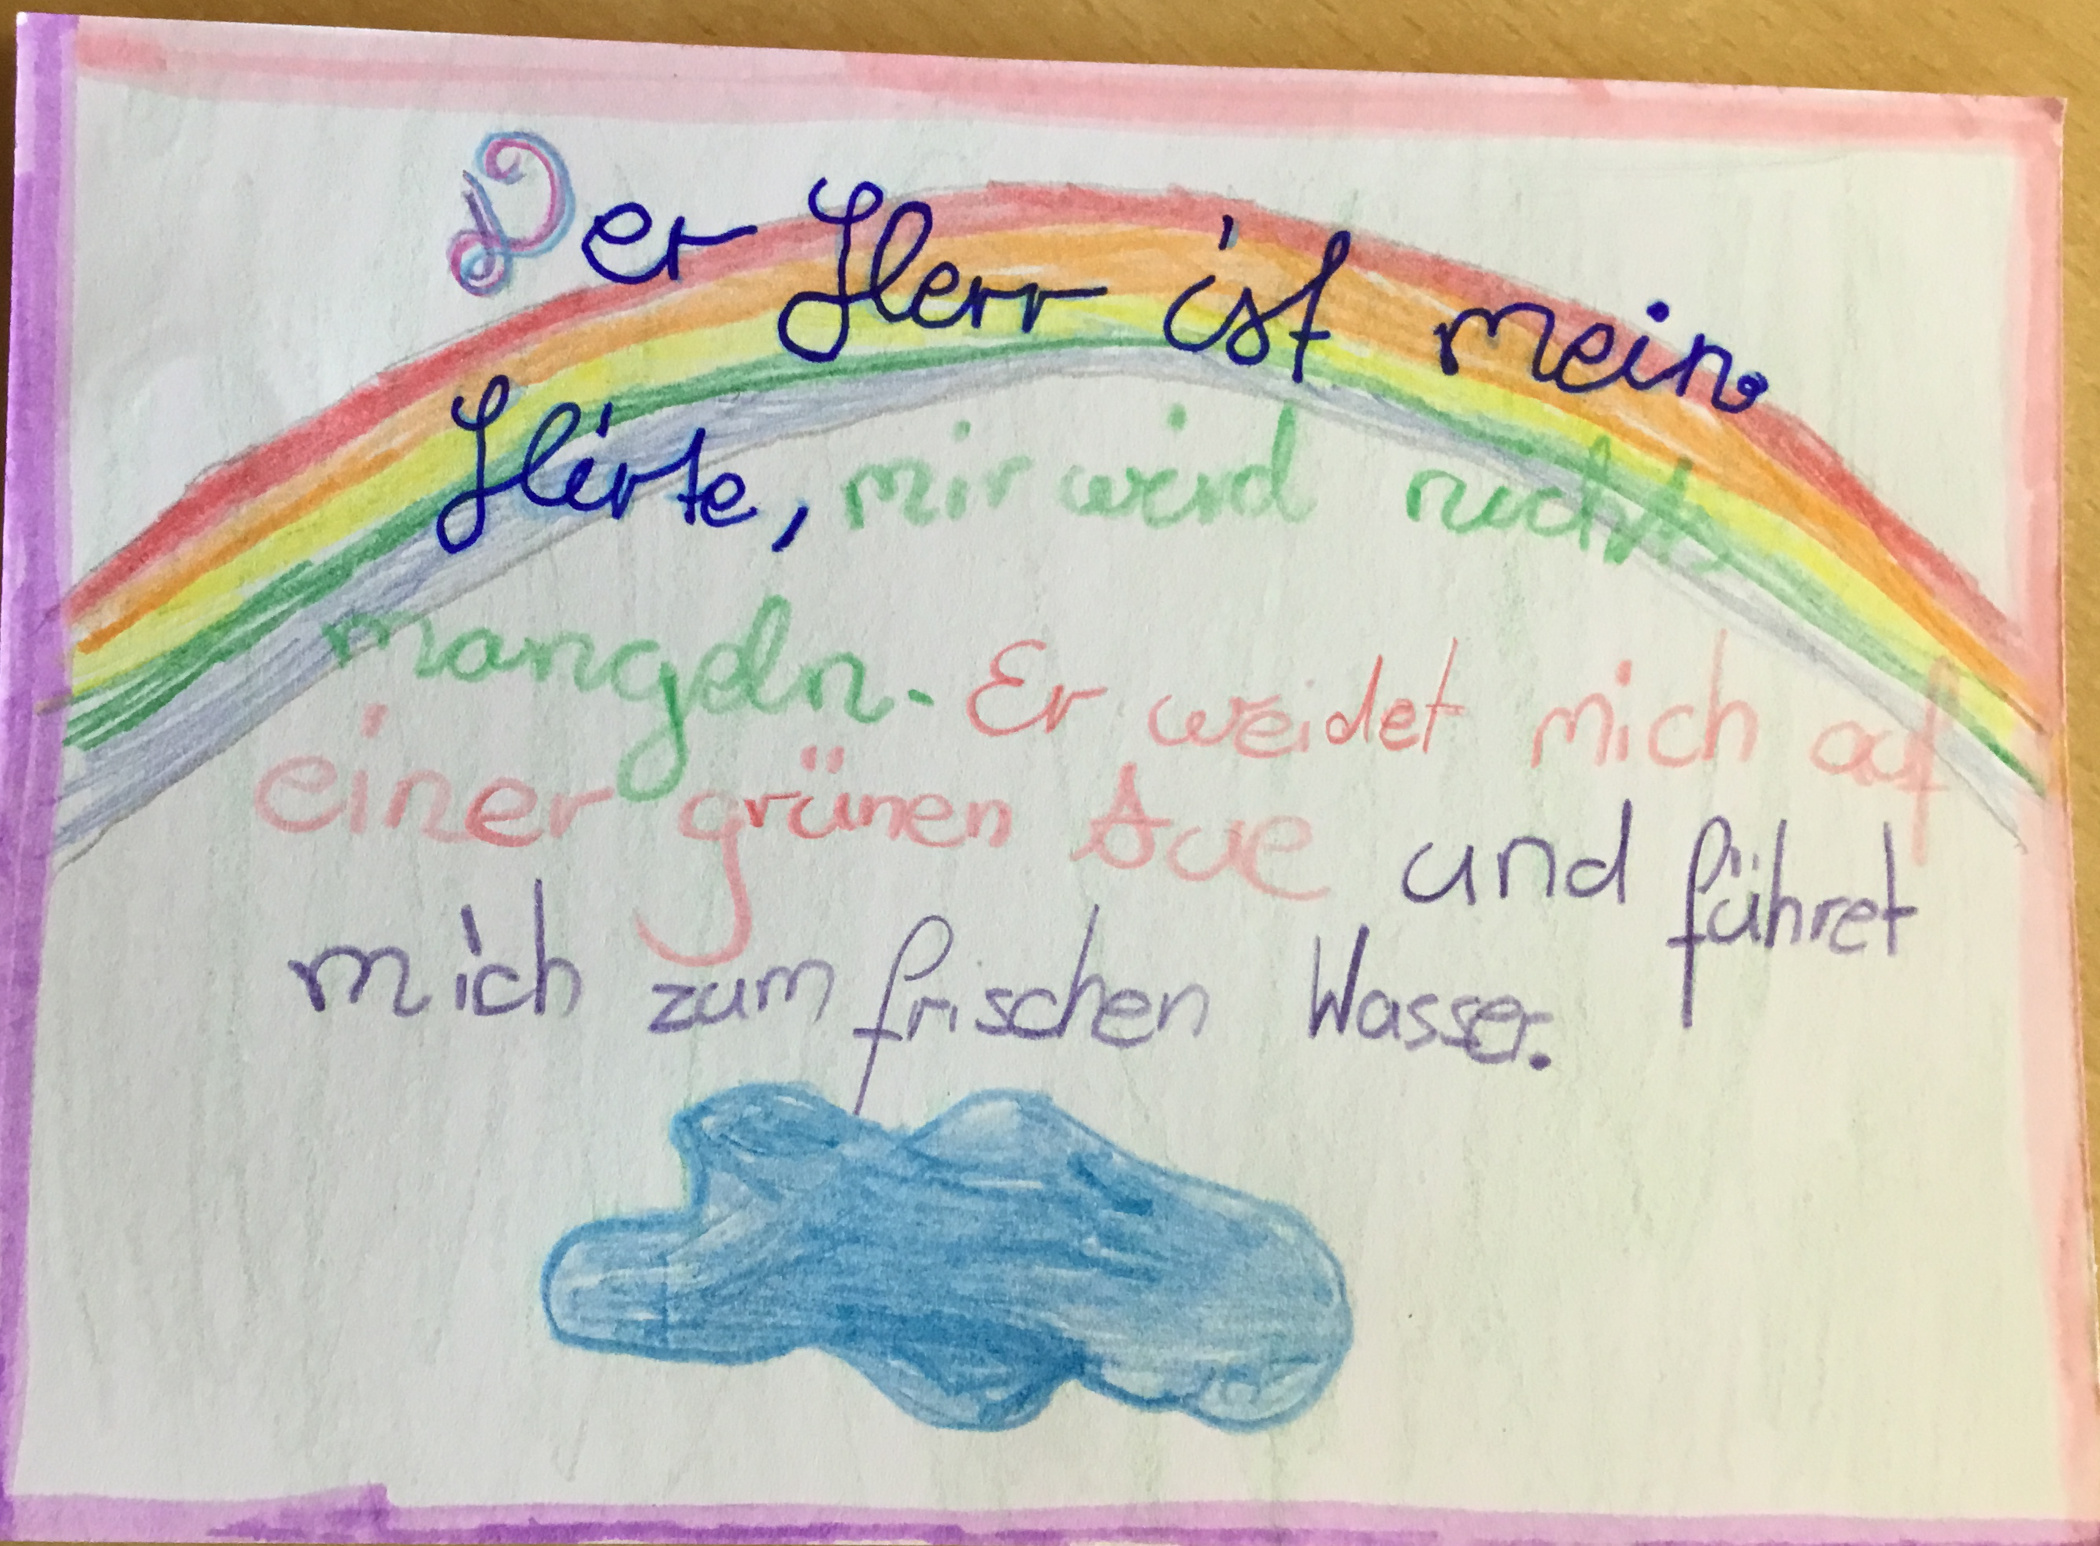 Der Herr ist mein
Hirte, mir wird nichts
mangeln. Er weidet mich auf
einer grünen Aue und führet
mich zum frischen Wasser.